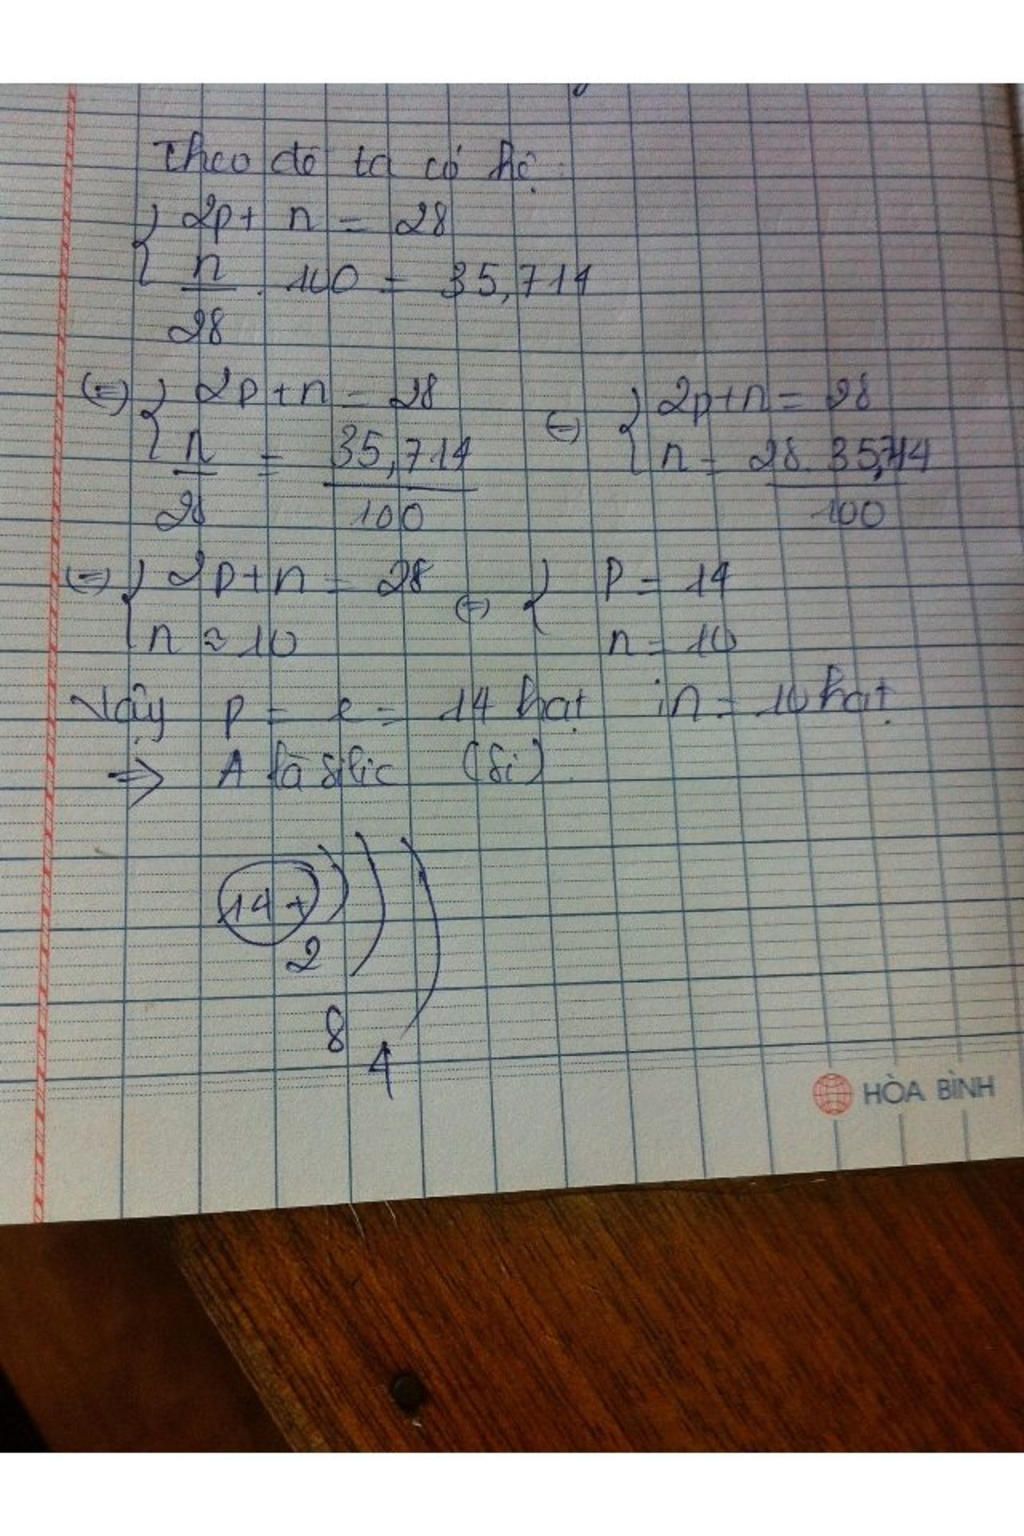 Theo đề ta có hệ:
{ 2p + n = 28
n/28 . 100 = 35,714
(=) { 2p + n = 28
n/28 = 35,714/100
(=) { 2p + n = 28
n = 28.35,714/100
(=) { 2p + n = 28
n ≈ 10
(=) { P = 14
n = 10
Vậy p = e = 14 hạt ; n = 10 hạt
=> A là silic (Si).
14+
2
8
4
HÒA BÌNH